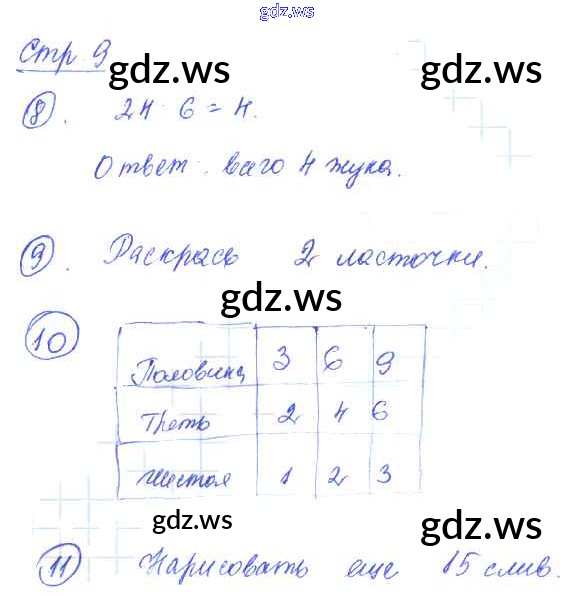 gdz.ws
Стр. 9
gdz.ws gdz.ws
8). 24 6 = 4.
Ответ: всего 4 жука.
9). Раскрась 2 ласточки.
gdz.ws
10
Половина 3 6 9
Треть 2 4 6
Шестая 1 2 3
gdz.ws gdz.ws
11) Нарисовать еще 15 слив.